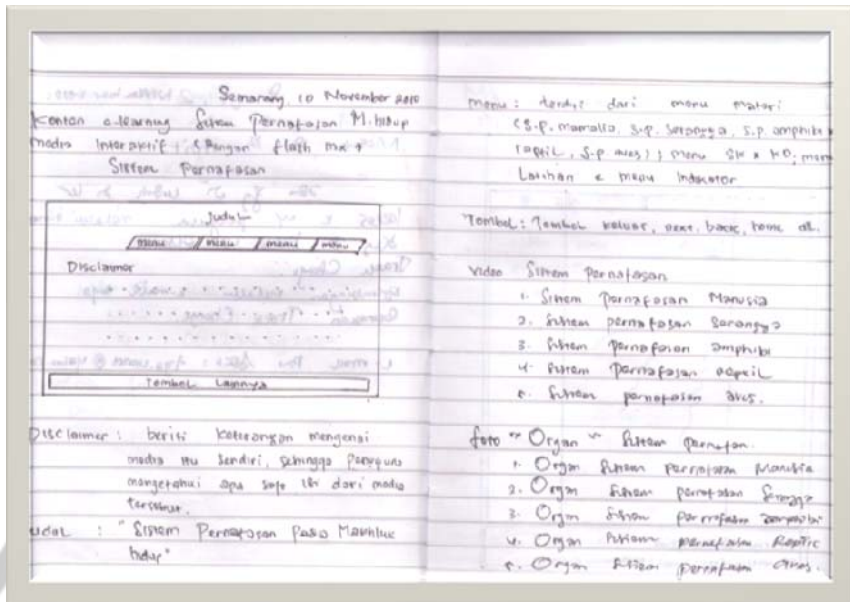 Semarang, 10 November 2010
Konten e-learning Sistem Pernafasan M.hidup
media Interaktif dengan flash mx
Sistem Pernafasan
Judul
menu menu menu menu
Disclaimer
Tombol Lainnya
Disclaimer : berisi keterangan mengenai
media itu sendiri, sehingga pengguna
mengetahui apa saja isi dari media
tersebut.
udul : "Sistem Pernafasan Pada Makhluk
hidup"
menu : terdiri dari menu materi
(S.p. mamalia, S.p. Serangga, S.p. amphibi
reptil, S.p aves) ; menu SK & KD; menu
Latihan & menu Indikator
Tombol : Tombol keluar, next, back, home
video Sistem pernafasan
1. Sistem Pernafasan Manusia
2. Sistem pernafasan Serangga
3. Sistem pernafasan amphibi
4. Sistem pernafasan reptil
5. Sistem pernafasan aves.
foto " Organ " Sistem
1. Organ Sistem pernafasan Manusia
2. Organ Sistem pernafasan Serangga
3. Organ Sistem pernafasan amphibi
4. Organ Sistem pernafasan
5. Organ Sistem pernafasan aves.